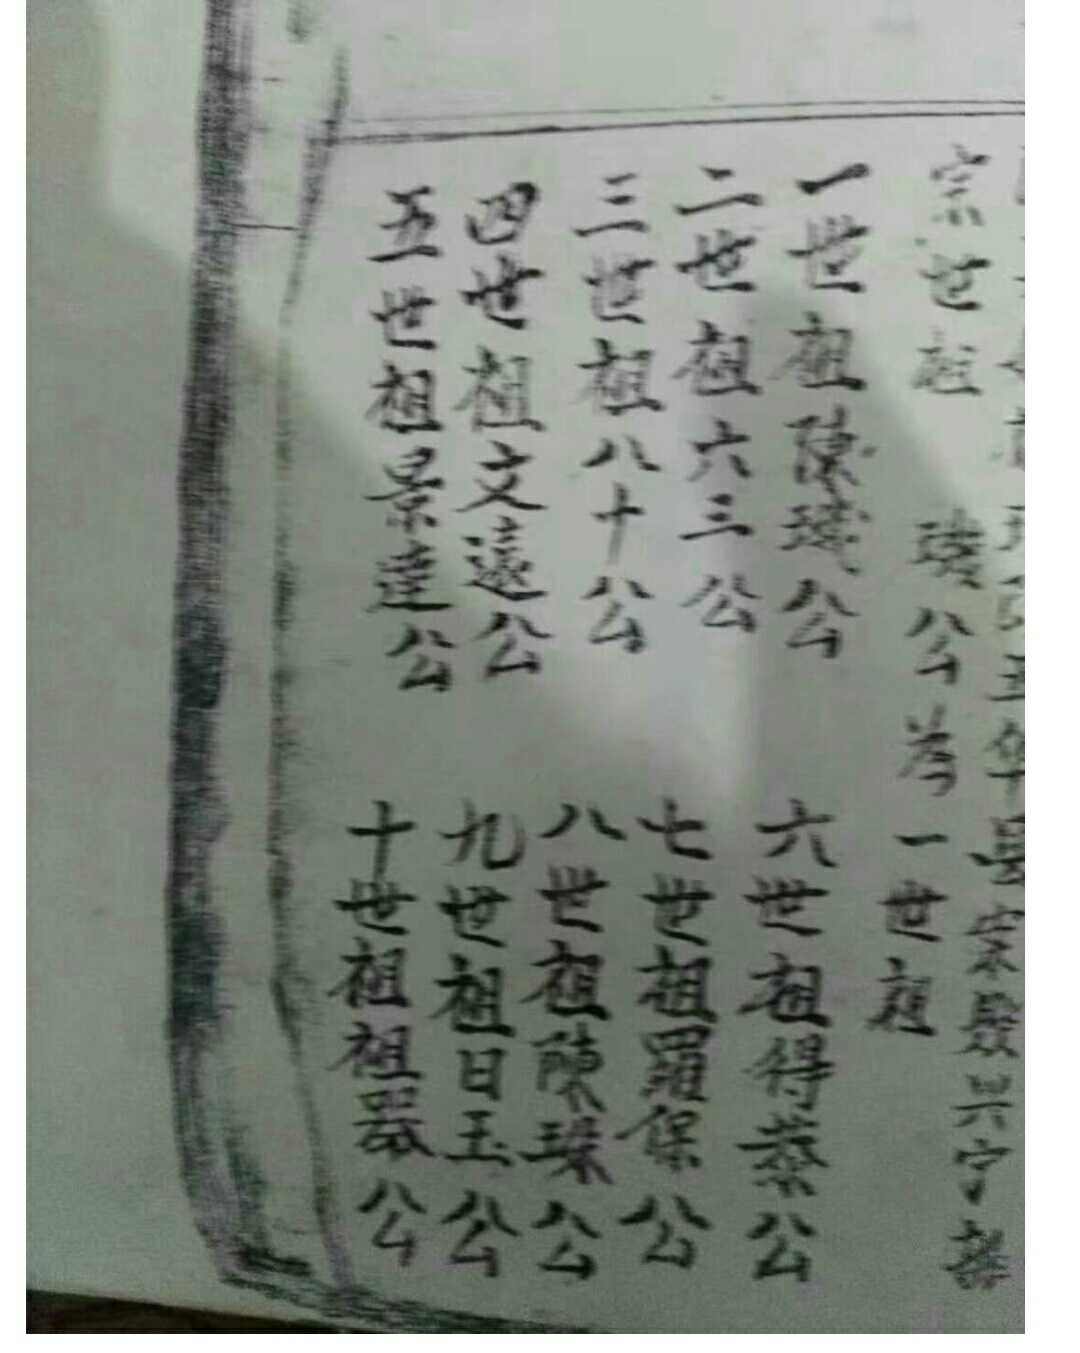 五华县宋殿兴宁县
宗世祖 璣公为一世祖
一世祖陳璣公
二世祖六三公
三世祖八十公
四世祖文遠公
五世祖景達公
六世祖得蔡公
七世祖羅保公
八世祖陳琛公
九世祖日玉公
十世祖祖器公